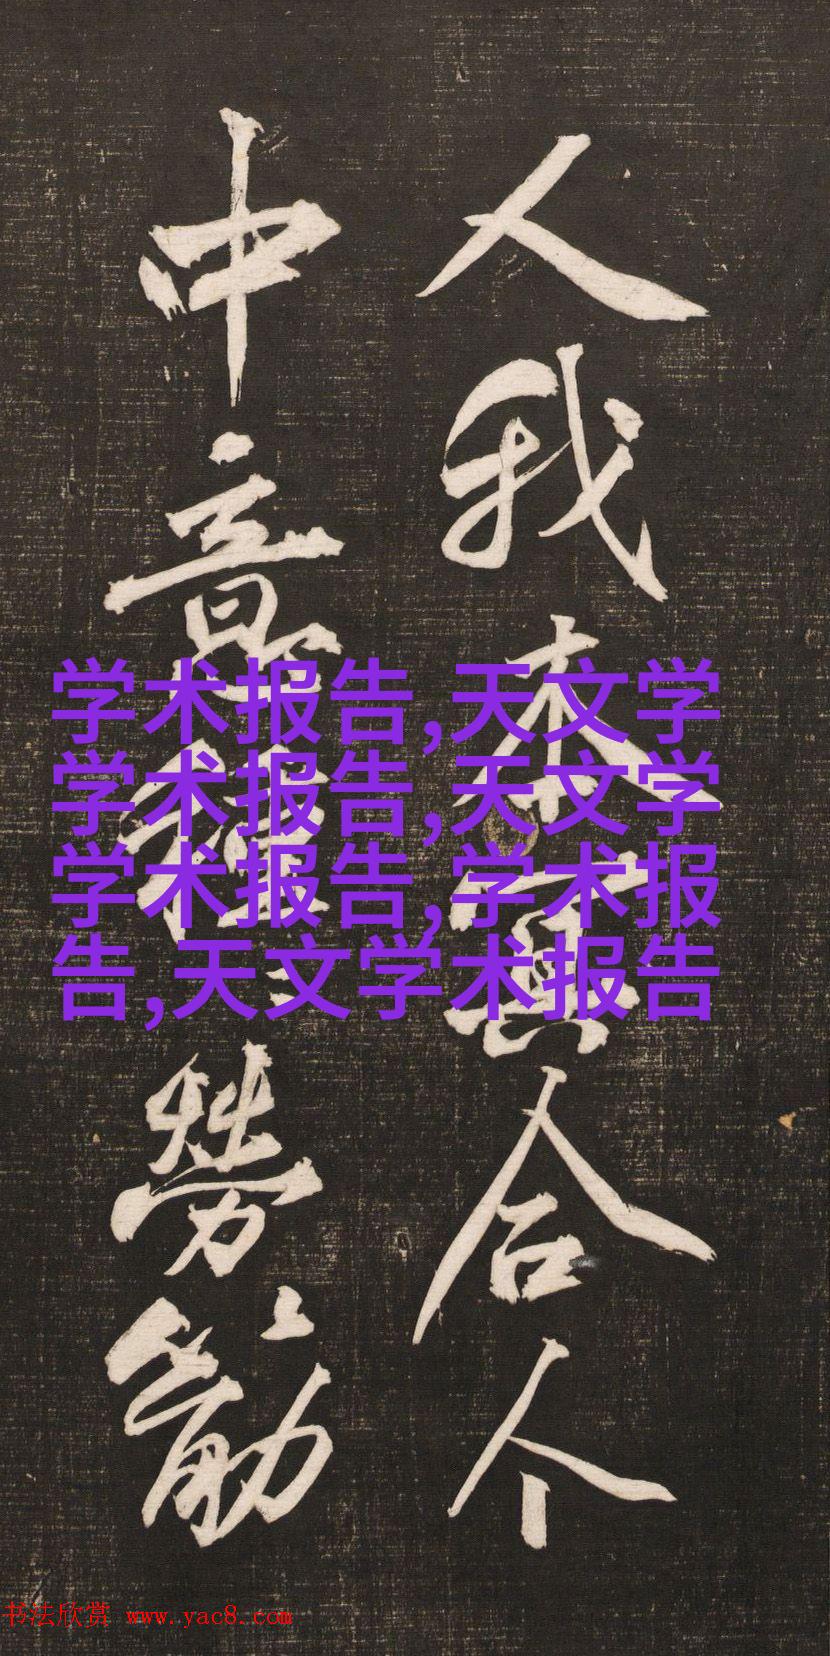 人我本冥合个
中意種勞筋
学术报告,天文学
学术报告,天文学
学术报告,学术报
告,天文学术报告
书法欣赏 www.yac8.com